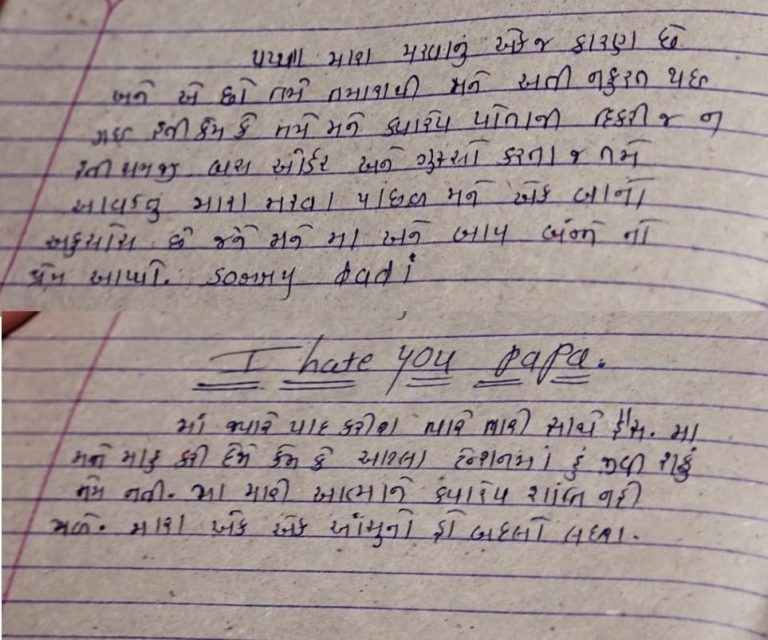 પપ્પા મારા મરવાનું એક જ કારણ છે
અને એ છો તમે તમારાથી મને અતી નફરત થઇ
ગઇ હતી કેમ કે તમે મને ક્યારેય પોતાની દિકરી જ ન
હતી સમજી બાસ ઓર્ડર અને ગુસ્સો કરતા જ તમે
આવડતુ મારા મરવા પાછળ મને એક બાનો
અફસોસ છે જેને મને મા અને બાપ બંન્ને નો
પ્રેમ આપ્યો. sorry dadi
I hate you papa.
માઁ જ્યારે યાદ કરીશ ત્યારે તારી સાથે હુઁસ. મા
મને માફ કરી દેજે કેમ કે આટલા ટેન્શનમાં હું જીવી શકું
તેમ નતી. મા મારી આત્માને ક્યારેય શાંતિ નહી
મળે. મારા એક એક આંસુનો હો બદલો લઇશ.